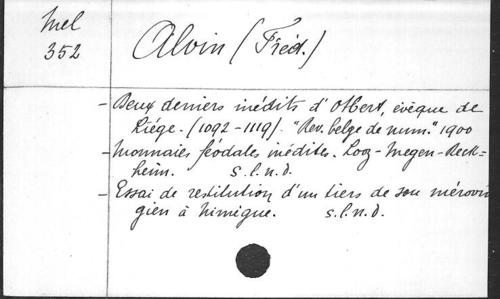 Mel
352
Alvin (Fréd.)
- Deux deniers inédits d'Otbert, évêque de
Liége. (1092-1119). "Rev. belge de num." 1900
- Monnaies féodales inédites. Looz-Megen-Reck-
heim. s.l.n.d.
- Essai de restitution d'un tiers de sou mérovin
gien à Nimègue. s.l.n.d.